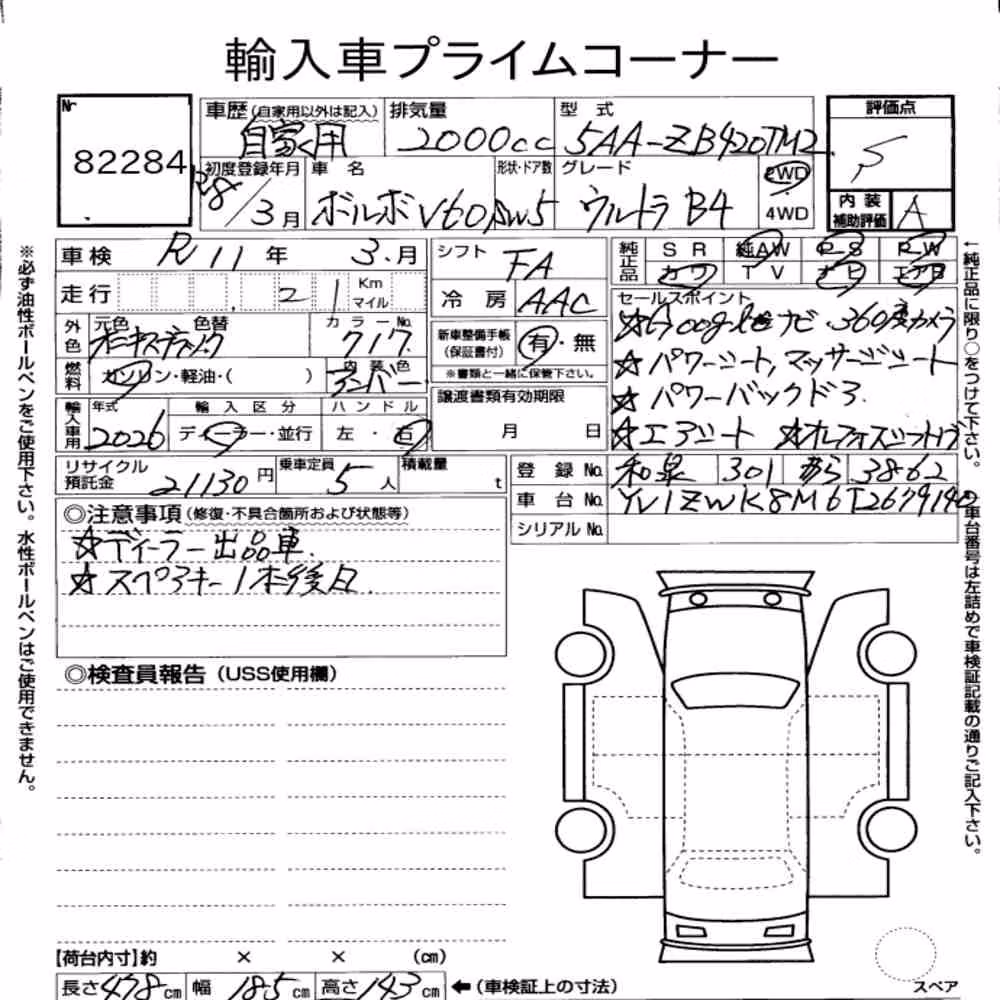 輸入車プライムコーナー
Nr 82284
車歴(自家用以外は記入) 自家用
排気量 2000cc
型式 5AA-ZB420TM2
評価点 S
初度登録年月 R8/3月
車名 ボルボV60
形状・ドア数 SW5
グレード ウルトラB4
2WD
4WD
内装補助評価 A
車検 R11年3.月
シフト FA
純正品 SR 純AW PS PW
カワ TV ナビ エアB
走行 21 Km マイル
冷房 AAC
セールスポイント
☆Google ナビ.360度カメラ
☆パワーシート,マッサージシート
☆パワーバックドア.
☆エアシート
外色 元色 色替 オニキスブラック
カラーNo. 717
新車整備手帳(保証書付) 有・無
※書類と一緒に保管下さい。
燃料 ガソリン・軽油・( )
内装色 アンバー
譲渡書類有効期限
月 日
輸入車用 年式 2026
輸入区分 ディーラー・並行
ハンドル 左・右
リサイクル預託金 21130円
乗車定員 5人
積載量 t
登録No. 和泉 301 3862
車台No.
シリアルNo.
◎注意事項(修復・不具合箇所および状態等)
☆ディーラー出品車.
☆スペアキー1本後日.
◎検査員報告(USS使用欄)
【荷台内寸】約 × × (cm)
長さ478cm 幅185cm 高さ143cm ←(車検証上の寸法)
スペア
※必ず油性ボールペンをご使用下さい。水性ボールペンはご使用できません。
←純正品に限り○をつけて下さい。
車台番号は左詰めで車検証記載の通りご記入下さい。